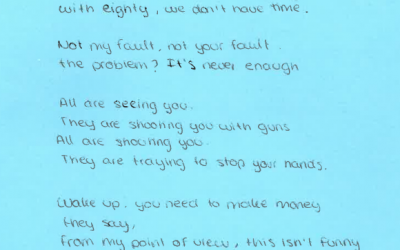 with eighty, we don't have time.
Not my fault, not your fault.
the problem? It's never enough
All are seeing you.
They are shooting you with guns
All are shooting you.
They are traying to stop your hands.
Wake up. you need to make money
they say,
From my point of view, this isn't funny